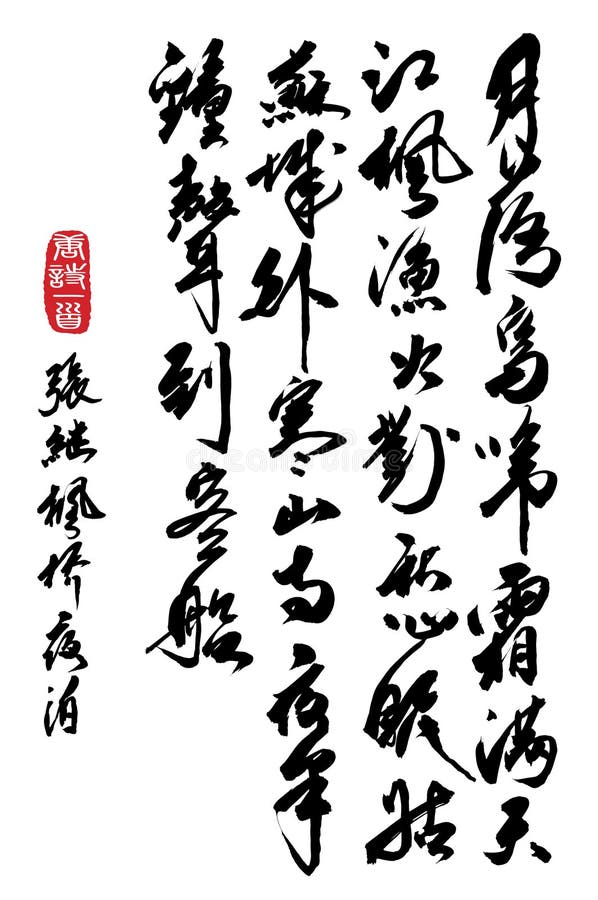 月落烏啼霜滿天
江楓漁火對愁眠姑
蘇城外寒山寺夜半
鐘聲到客船
唐詩一首
張継楓桥夜泊